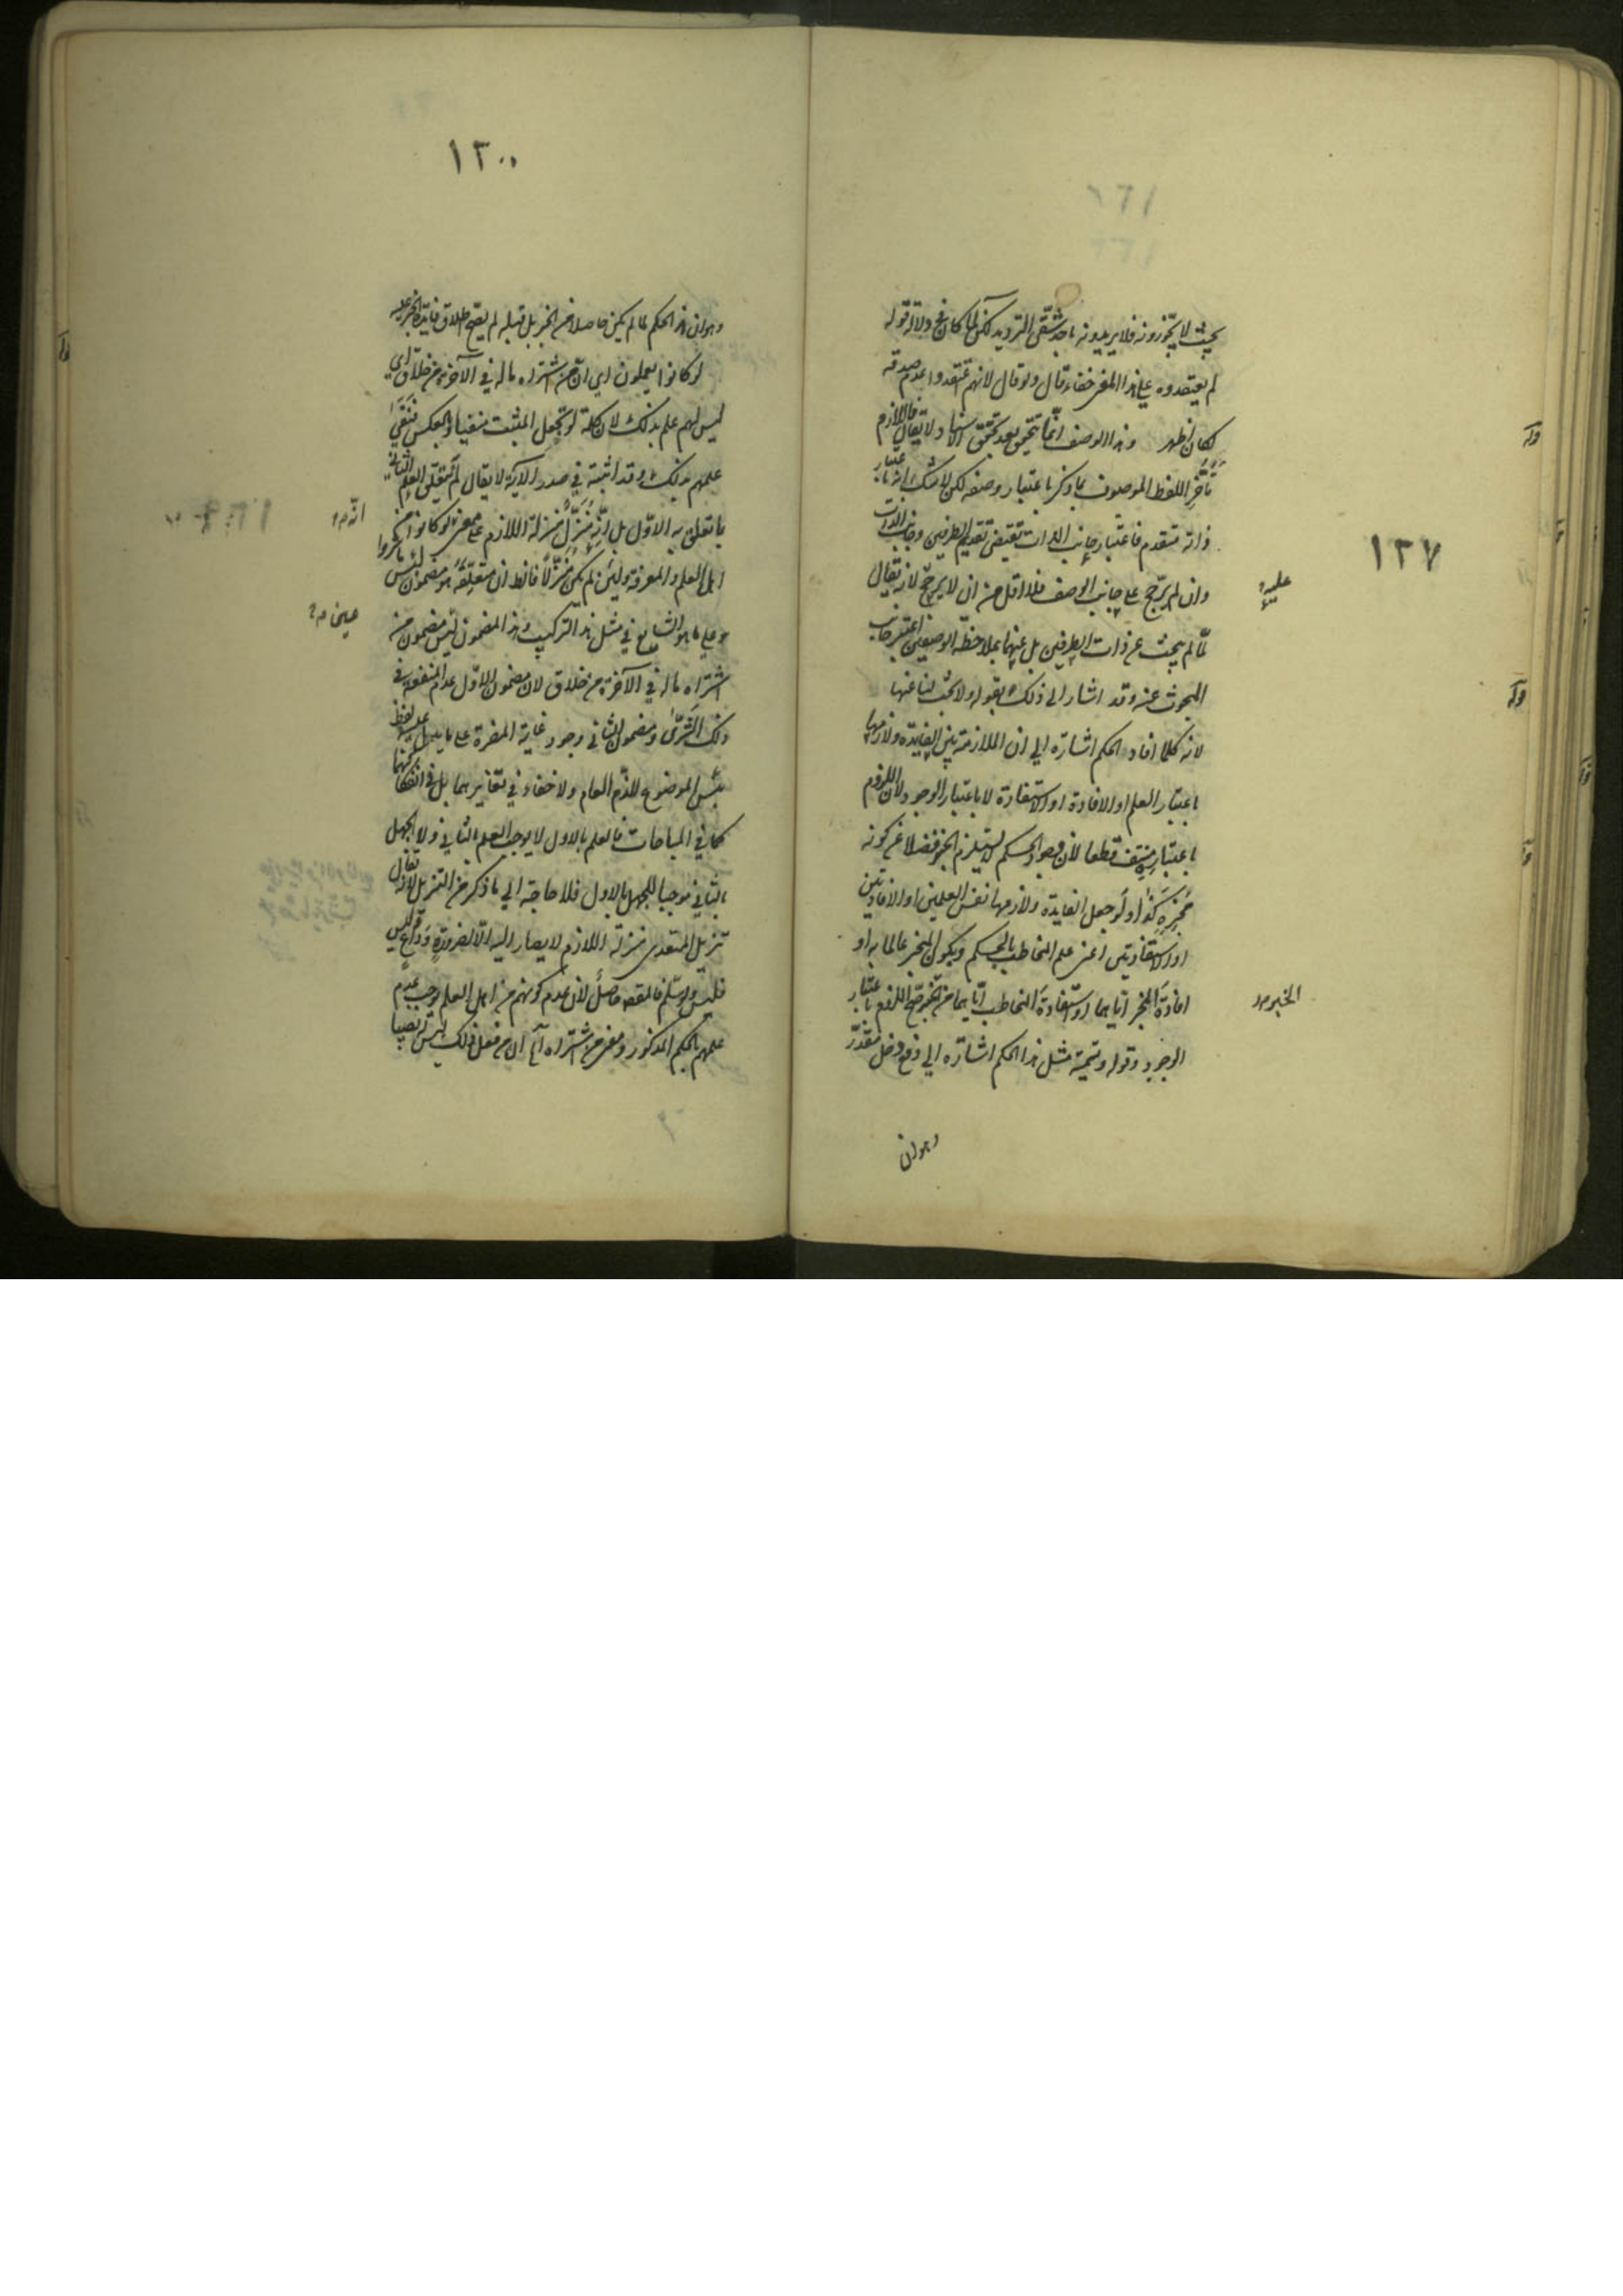 ١٢٧
بحيث لا يجوزونه فلا يريدونه باحد شقى الترديد لكن لما كان فى دلالة قوله
لم يعتقدوه على هذا المعنى خفاء قال ولو قال لانهم اعتقدوا عدم صدقه
لكان اظهر وهذا الوصف انما تحقق بعد تحقق الاسناد لا يقال فاللازم
تأخر اللفظ الموصوف بما ذكر باعتبار وصفه لكن لا شك انه باعتبار
ذاته متقدم فاعتبار جانب الذات تقتضى تقديم الطرفين وجانب الذات
وان لم يترجح على جانب الوصف فلا اقل من ان لا يرجح لانه يقال
عليه
لما لم يبحث عن ذات الطرفين بل عنهما بملاحظة الوصفين اعتبر جانب
المبحوث عنه وقد اشار الى ذلك بقوله ولا بحث لنا عنها
لانه كلما افاد الحكم اشارة الى ان الملازمة بين الفايدة ولازمها
باعتبار العلم او الافادة او الاستفادة لا باعتبار الوجود لان اللزوم
باعتباره منتف قطعا لان وجود الحكم لا يستلزم الخبر فضلا عن كونه
مخبره كذا ولو جعل الفايدة ولازمها نفس العلمين او الافادتين
او الاستفادتين اعنى علم المخاطب بالحكم وبكون المخبر عالما به او
افادة المخبر اياهما او استفادة المخاطب اياهما من الخبر صح اللزوم باعتبار
الخبر
الوجود وقوله وتسمية مثل هذا الحكم اشارة الى دفع دخل مقدر
وهو ان
١٣٠٠
وهو ان هذا الحكم لما لم يكن حاصلا من الخبر بل قبله لم يصح اطلاق فايدة الخبر عليه
لو كانوا يعلمون اى ان من اشتراه ما له فى الآخرة من خلاق اى
ليس لهم علم بذلك لان كلمة لو تجعل المثبت منفيا وبالعكس فنفى
علمهم بذلك وقد اثبته فى صدر الآية لا يقال لم يتعلق العلم الثانى
بما تعلق به الاول بل انه منزل منزلة اللازم على معنى لو كانوا من
انه
اهل العلم والمعرفة ولئن لم يكن منزلا فانظر ان متعلقه هو مضمون لبئس ما شروا
وعلى ما هو الشايع فى مثل هذا التركيب وهذا المضمون ليس مضمون من
عين
اشتراه ما له فى الآخرة من خلاق لان مضمون الاول عدم المنفعة فى
ذلك الشرى ومضمون الثانى وجود غاية المضرة على ما يدل عليه لفظ
بئس الموضوع للذم العام ولا خفاء فى تغايرهما بل فى انفكاكهما
كما فى المباحات فالعلم بالاول لا يوجب العلم بالثانى ولا الجهل
بالثانى موجبا للجهل بالاول فلا حاجة الى ما ذكر من التنزيل لانه يقال
تنزيل المتعدى منزلة اللازم لا يصار اليه الا لضرورة وداع وليس
فليس ولو سلم فالمقصد حاصل لان عدم كونهم من اهل العلم يوجب عدم
علمهم بالحكم المذكور ومعنى من اشتراه آه ان من فعل ذلك ليس نصيبا